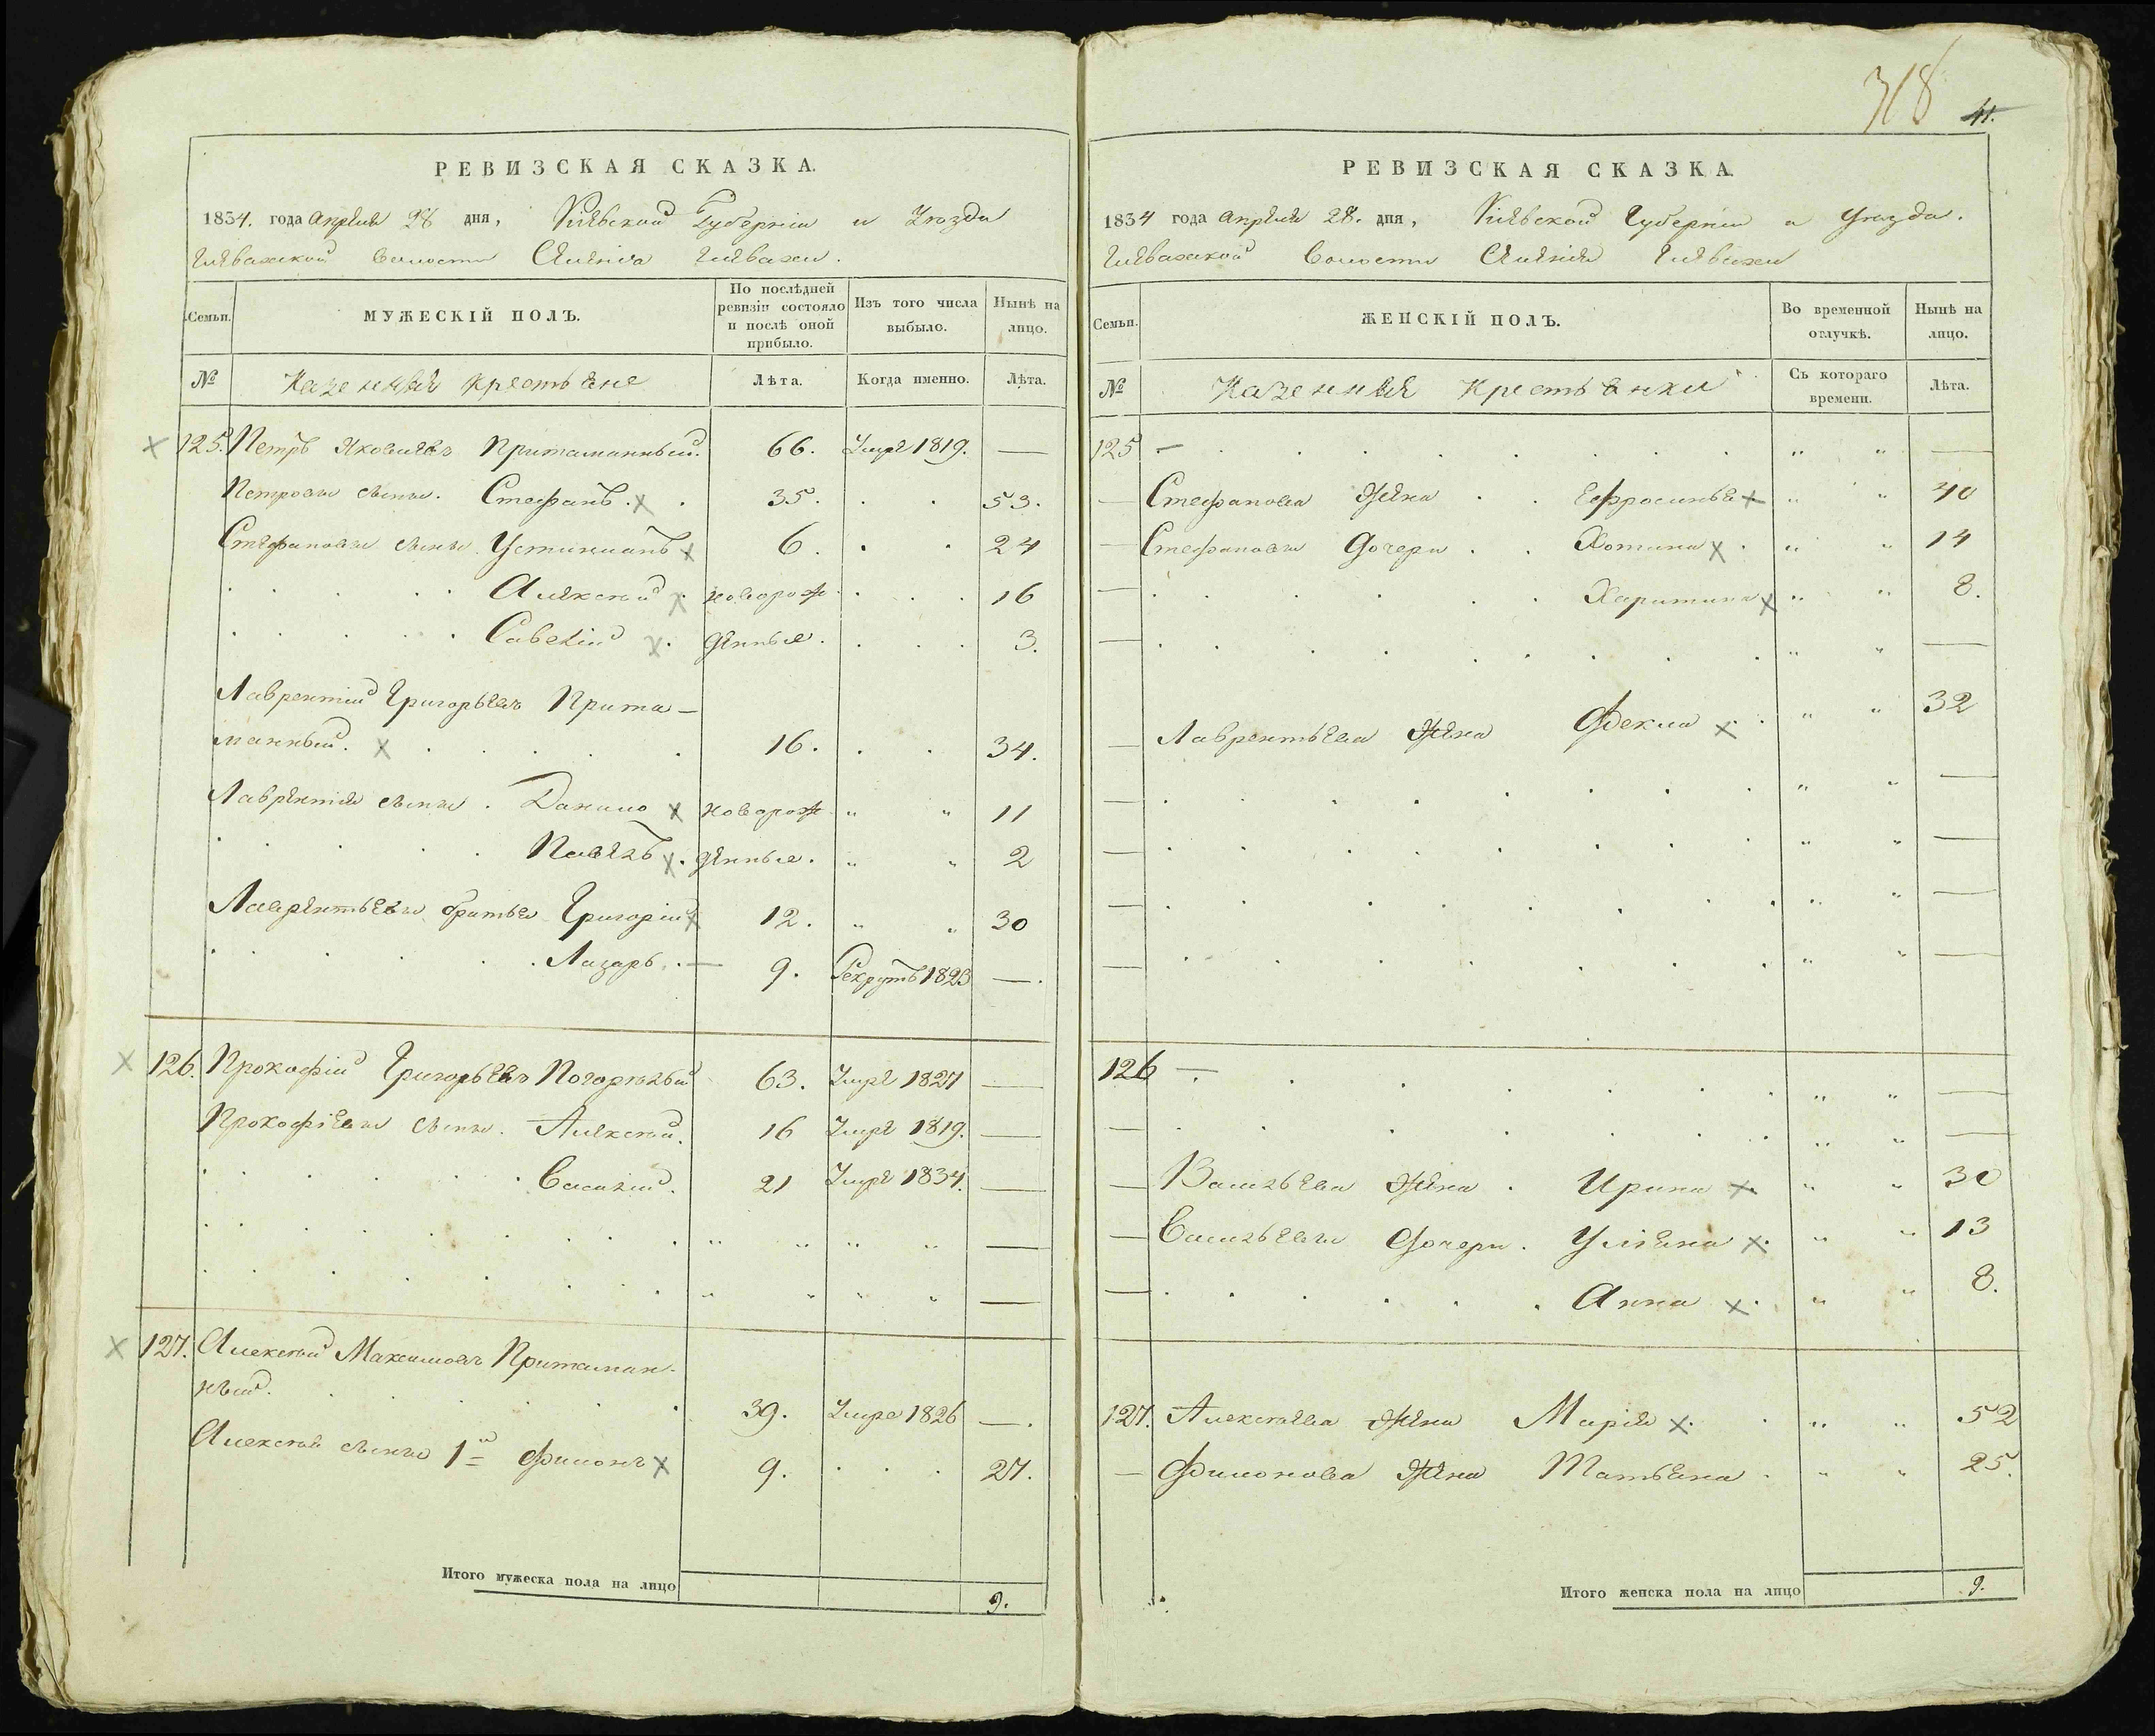 318 41.
РЕВИЗСКАЯ СКАЗКА.
1834. года Апреля 28 дня, Киевской Губернии и Уезда
Глевахской Волости Селения Глевахи.
Семьи.
МУЖЕСКІЙ ПОЛЪ.
По послѣдней ревизіи состояло и послѣ оной прибыло.
Изъ того числа выбыло.
Нынѣ на лицо.
№ Казенные крестьяне Лѣта. Когда именно. Лѣта.
125. Петръ Яковлевъ Притаманный. 66. Умре 1819. —
Петровы сыны. Стефанъ. 35. 53.
Стефановы сыны. Устинианъ 6. 24
Алексей новорож 16
Савелий денные. 3.
Лаврентий Григорьевъ Прита-
манный. 16. 34.
Лаврентия сыны. Данило новорож " " 11
Павелъ денные. " " 2
Лаврентьевы братья Григорий 12. " " 30
Лазарь. — 9. Рекрутъ 1823 —.
126. Прокофий Григорьевъ Погорелый 63. Умре 1827 —
Прокофиевы сыны. Алексей. 16 Умре 1819. —
Василий. 21 Умре 1834. —
" " " " —
" " " " —
127. Алексей Максимовъ Притаман-
ный. 39. Умре 1826 —.
Алексея сыны 1й Филонъ 9. 27.
Итого мужеска пола на лицо 9.
РЕВИЗСКАЯ СКАЗКА.
1834 года Апреля 28. дня, Киевской Губернии и Уезда.
Глевахской Волости Селения Глевахи
Семьи.
ЖЕНСКІЙ ПОЛЪ.
Во временной отлучкѣ.
Нынѣ на лицо.
№ Казенные крестьянки Съ котораго времени. Лѣта.
125 — " " —
— Стефанова жена Ефросинья " " 40
— Стефановы дочери Хотина " " 14
— Харитина " " 8.
— " " —
— Лаврентьева жена Фекла " " 32
— " " —
— " " —
— " " —
— " " —
126 — " " —
— " " —
— Васильева жена Ирина " " 30
— Васильевы дочери. Ульяна " " 13
— Анна " " 8.
127. Алексеева жена Мария " " 52
— Филонова жена Татьяна " " 25.
Итого женска пола на лицо 9.